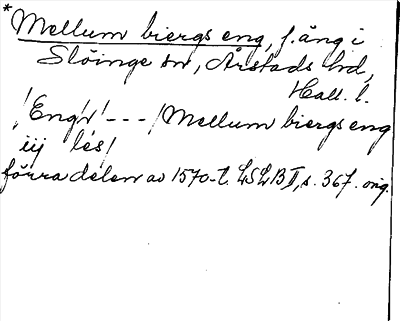 *Mellum biergs eng, f. äng i
Slöinge sn, Årstads hd,
Hall. l.
/Eng'r/ - - - /Mellum biergs eng
iij les/
förra delen av 1570-t. LSLB II, s. 367. orig.